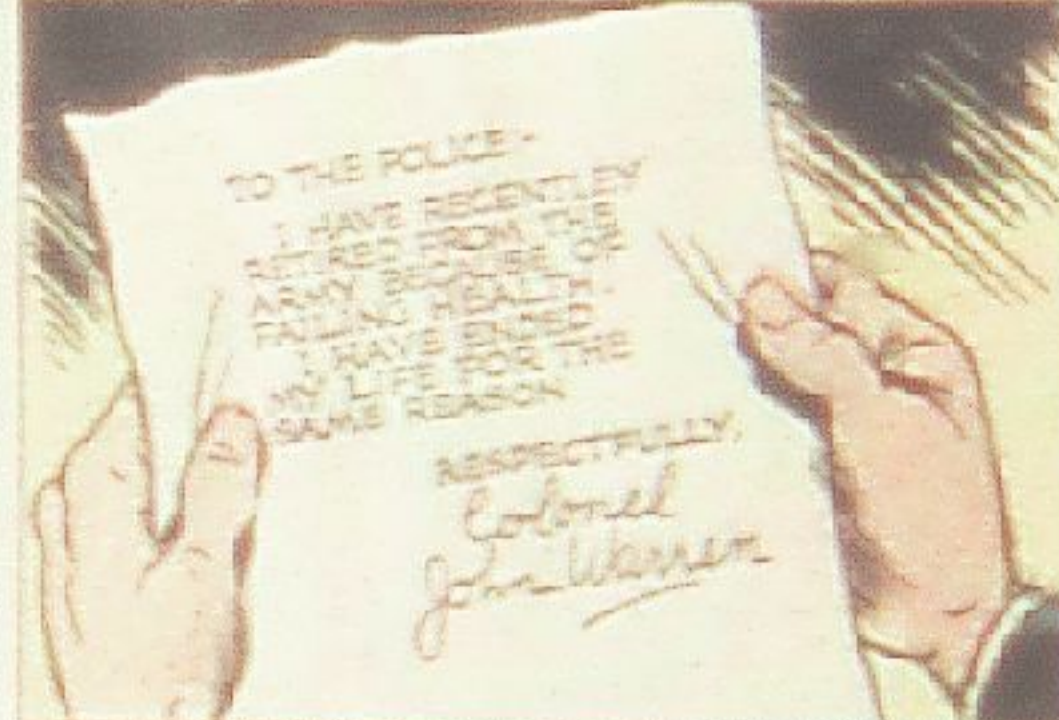 TO THE POLICE -
I HAVE RECENTLEY
RETIRED FROM THE
ARMY BECAUSE OF
FAILING HEALTH.
I HAVE ENDED
MY LIFE FOR THE
SAME REASON
RESPECTFULLY,
Colonel
John Warren